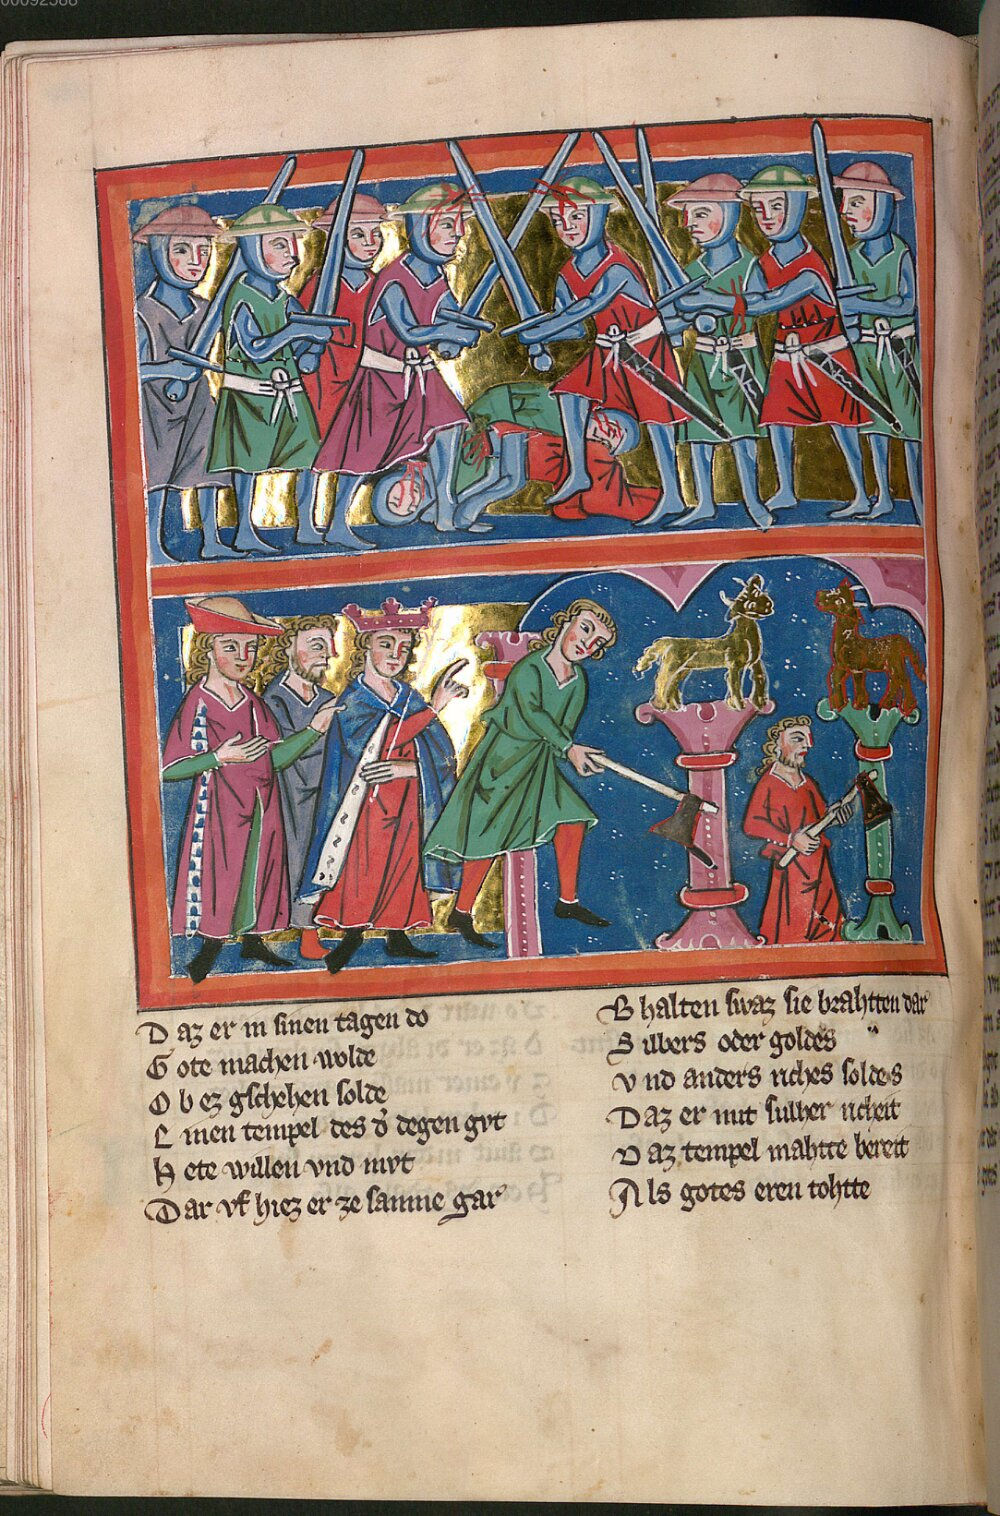 00092588
Daz er in sinen tagen do
Gote machen wolde
Ob ez gschehen solde
Einen tempel des d̾ degen gvt
Hete willen vnd mvt
Dar vf hiez er ze samne gar
Bhalten swaz sie brahtten dar
Silbers oder goldes
Vnd anders riches soldes
Daz er mit sulher richeit
Daz tempel mahtte bereit
Als gotes eren tohtte